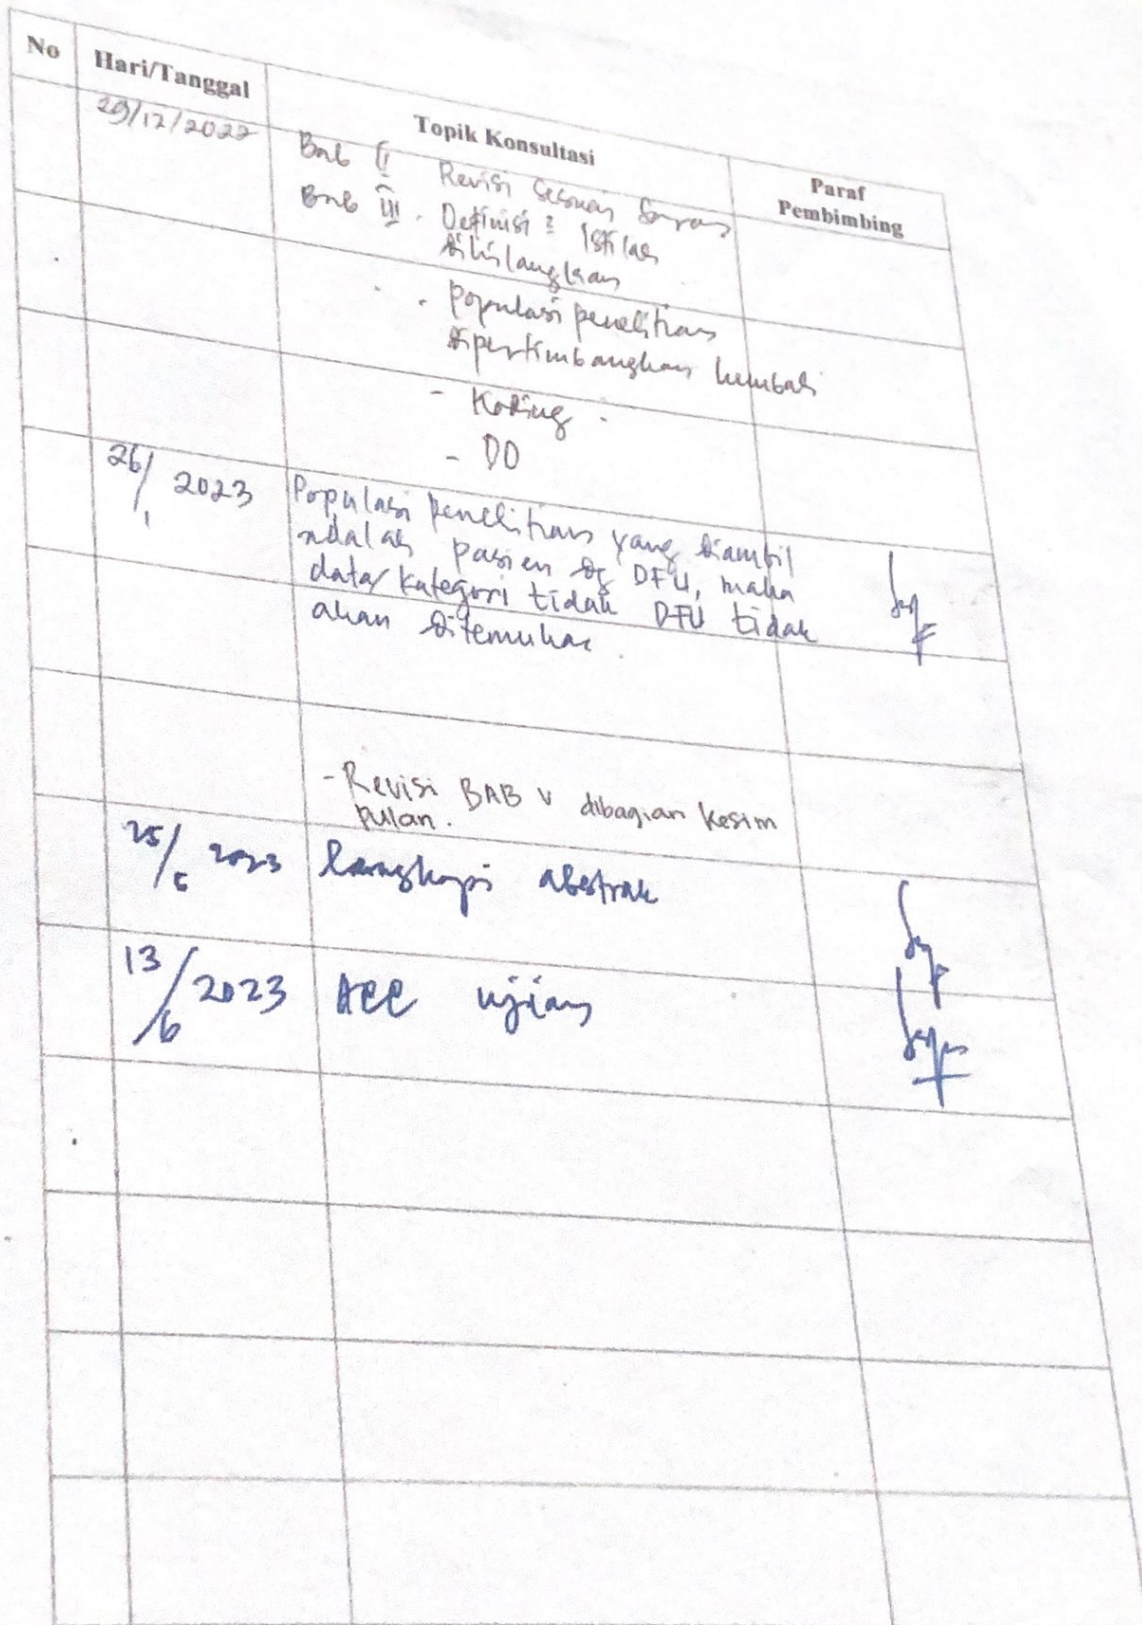 No
Hari/Tanggal
Topik Konsultasi
Paraf
Pembimbing
29/12/2022
Bab II Revisi sesuai saran
Bab III - Definisi² Istilah
dihilangkan
- populasi penelitian
dipertimbangkan kembali
- Koding
- DO
26/1 2023
Populasi penelitian yang diambil
adalah pasien dg DFU, maka
data/kategori tidak DFU tidak
akan ditemukan
- Revisi BAB V dibagian kesim
pulan.
25/5 2023 lengkapi abstrak
13/6 2023 ACC ujian